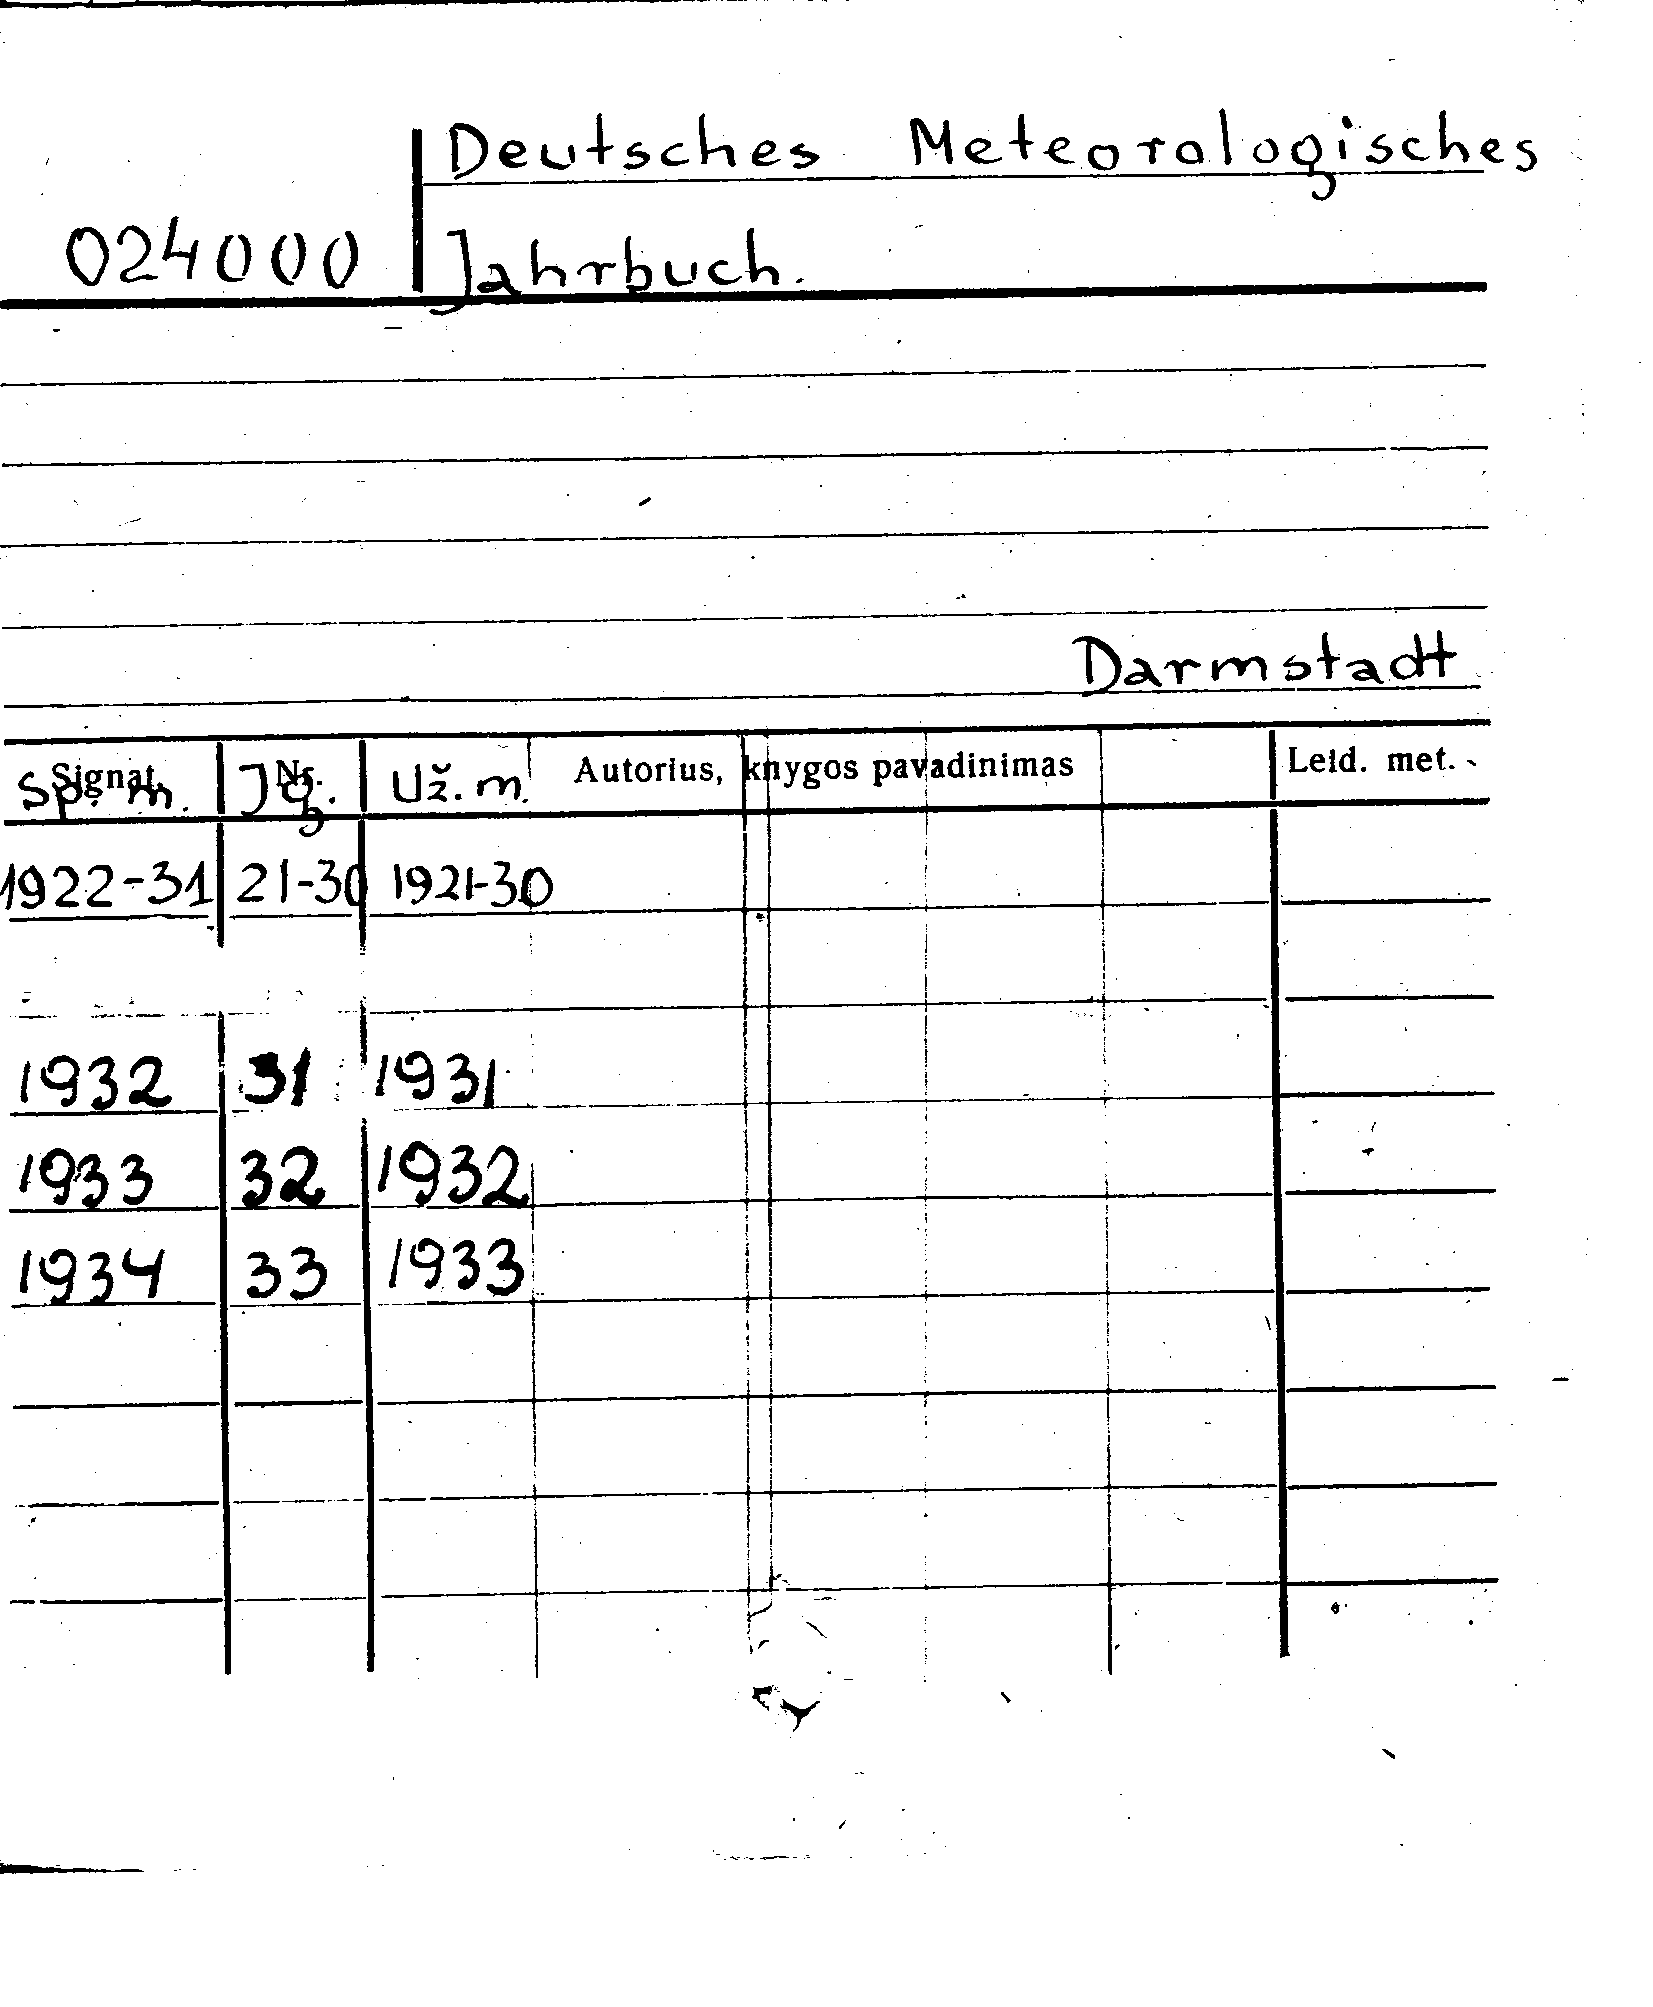 Deutsches Meteorologisches
024000 Jahrbuch.
Darmstadt
Signat. Nr. Autorius, knygos pavadinimas Leid. met.
Sp. m. Jg. Už. m.
1922-31 21-30 1921-30
1932 31 1931
1933 32 1932
1934 33 1933